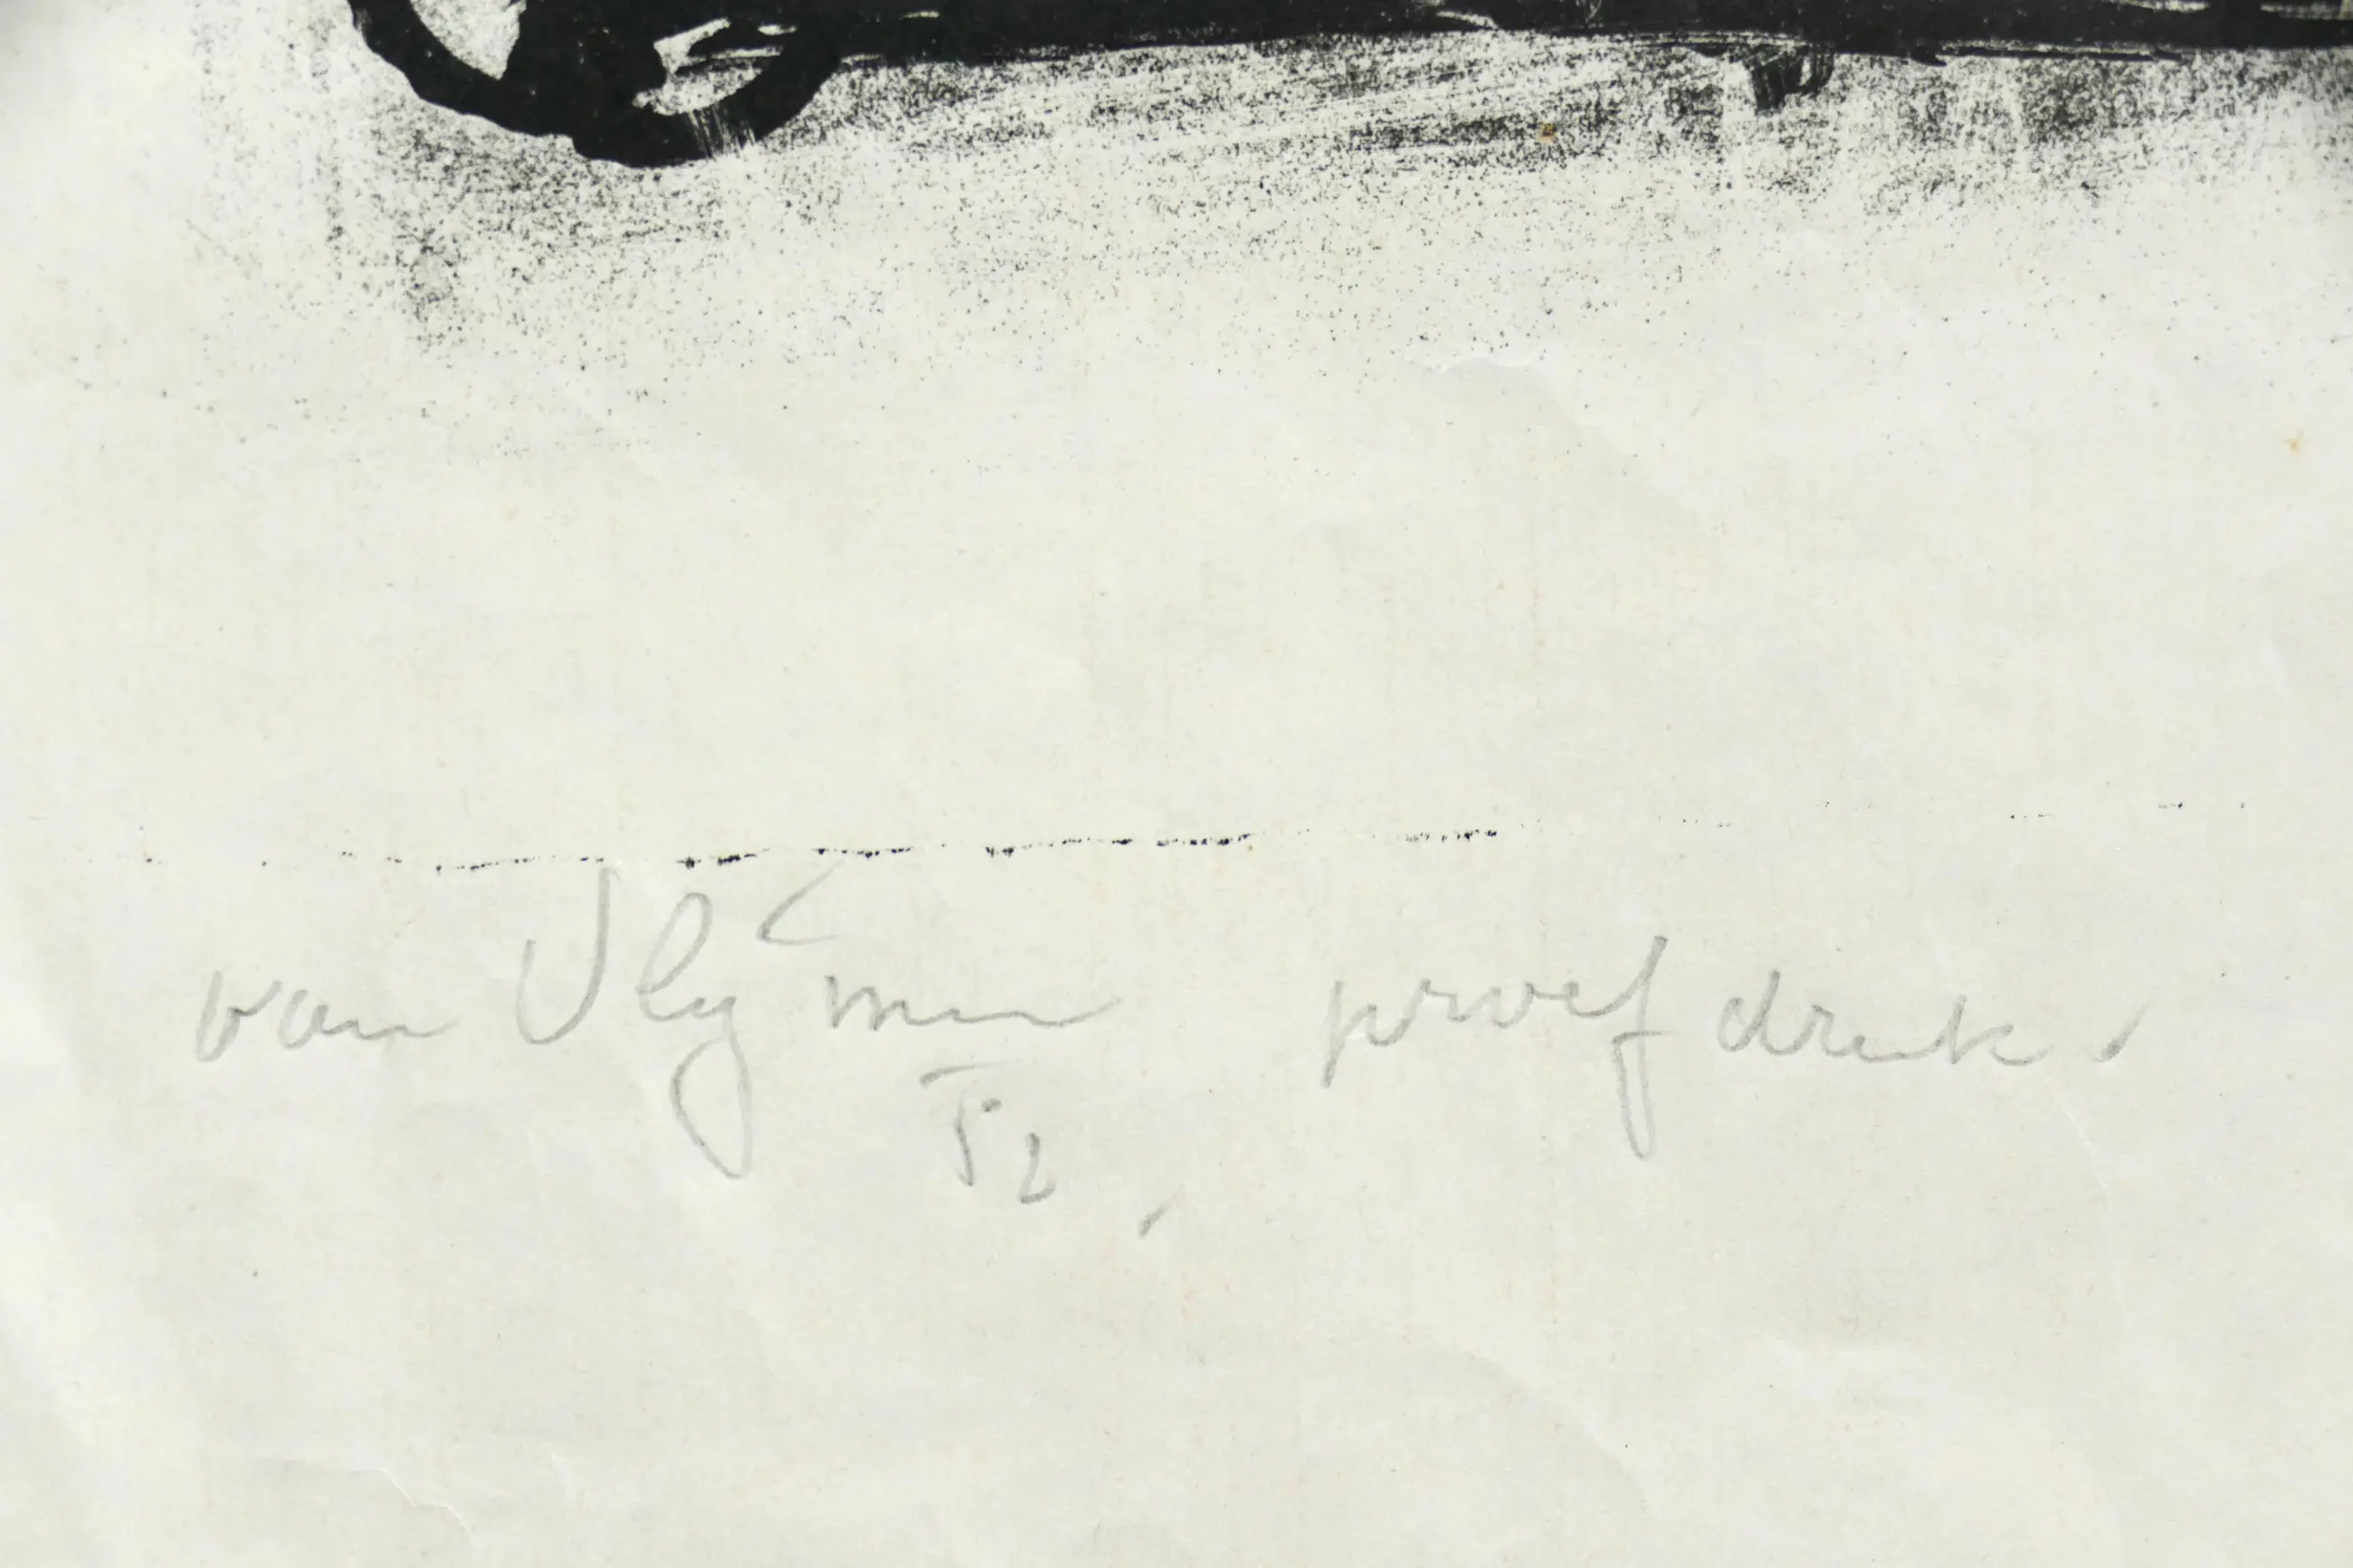 van Vlijmen proefdruk.
52.